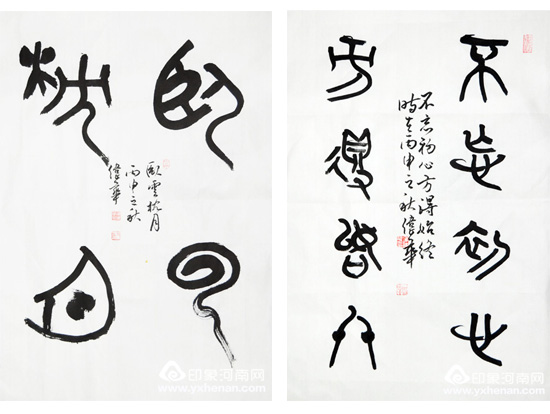 臥雲
枕月
卧雲枕月
丙申之秋
華
不忘初心
方得始終
不忘初心方得始终
时在丙申之秋
華
印象河南网
www.yxhenan.com
印象河南网
www.yxhenan.com